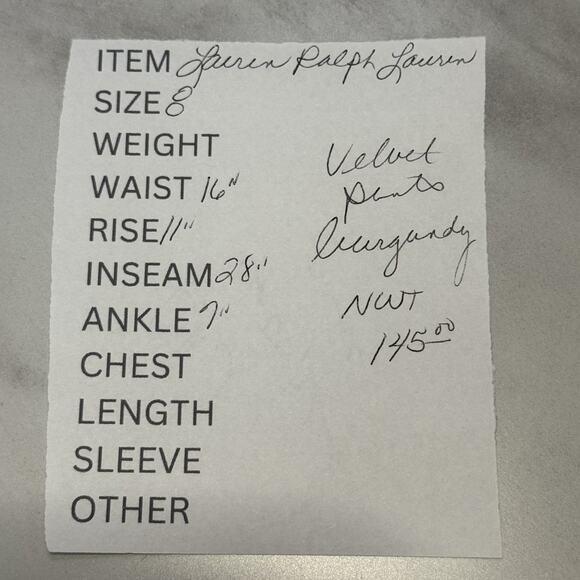 ITEM Lauren Ralph Lauren
SIZE 8
WEIGHT
WAIST 16"
RISE 11"
INSEAM 28"
ANKLE 7"
CHEST
LENGTH
SLEEVE
OTHER
Velvet
pants
burgundy
NWT
145.00